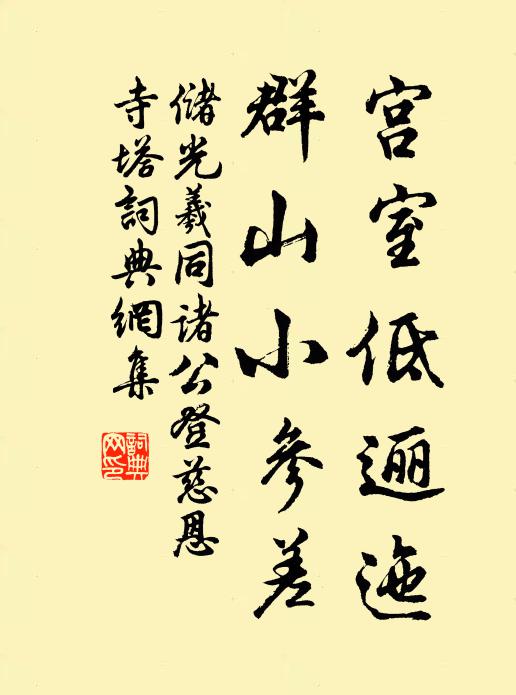 宫室低逦迤
群山小參差
儲光羲同諸公登慈恩
寺塔詞典網集
詞典
网印